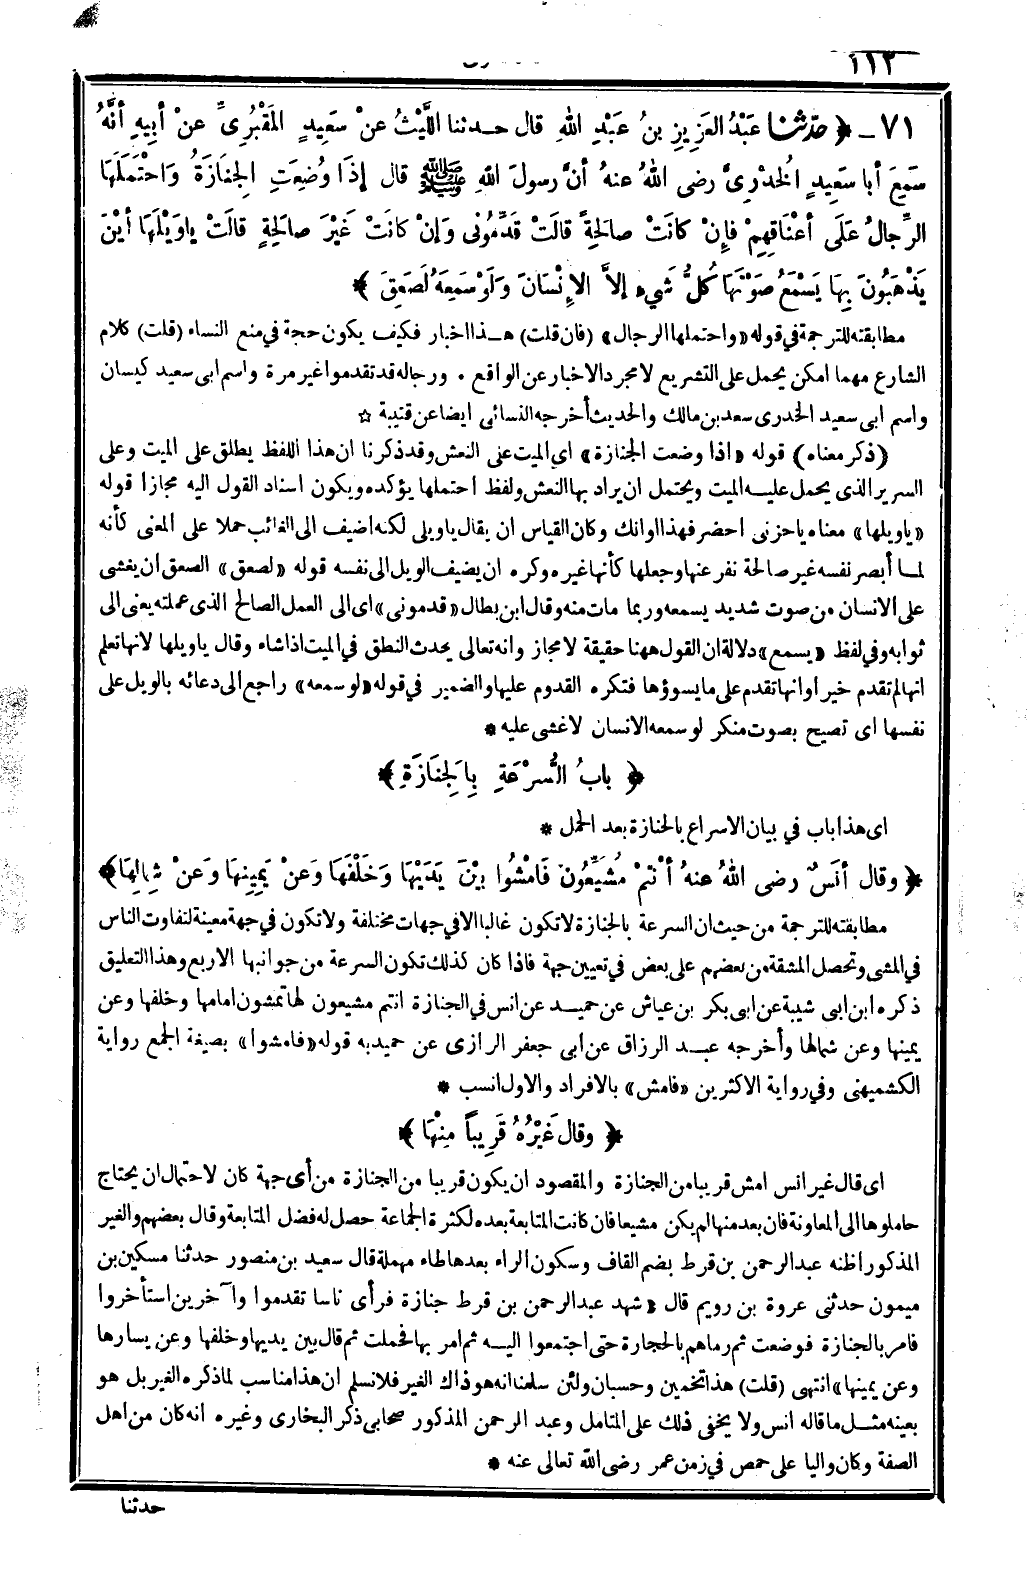 ١١٢
٧١ - ﴿ حدّثنا عَبْدُ العَزِيزِ بنُ عَبْدِ اللهِ قال حدثنا اللَّيْثُ عنْ سَعِيدٍ المَقْبُرِىِّ عنْ أبِيهِ أنَّهُ
سَمِعَ أبا سَعِيدٍ الخُدْرِىَّ رضى اللهُ عنهُ أنَّ رسولَ اللهِ ﷺ قال إذَا وُضِعَتِ الجِنَازَةُ وَاحْتَمَلَهَا
الرِّجالُ عَلَى أعْنَاقِهِمْ فإِنْ كانَتْ صالِحَةً قالَتْ قَدِّمُونِى وَإنْ كانَتْ غَيْرَ صالِحَةٍ قالَتْ ياوَيْلَهَا أيْنَ
يَذْهَبُونَ بِهَا يَسْمَعُ صَوْتَهَا كُلُّ شَيءٍ إلاَّ الإِنْسَانَ وَلَوْ سَمِعَهُ لَصَعِقَ ﴾
مطابقته للترجمة في قوله «واحتملها الرجال» (فان قلت) هذا اخبار فكيف يكون حجة في منع النساء (قلت) كلام
الشارع مهما امكن يحمل على التشريع لا مجرد الاخبار عن الواقع . ورجاله قد تقدموا غير مرة واسم ابى سعيد كيسان
واسم ابى سعيد الخدرى سعد بن مالك والحديث أخرجه النسائى ايضا عن قتيبة ☆
(ذكر معناه) قوله «اذا وضعت الجنازة» اى الميت على النعش وقد ذكرنا ان هذا اللفظ يطلق على الميت وعلى
السرير الذى يحمل عليه الميت ويحتمل ان يراد بها النعش ولفظ احتملها يؤكده ويكون اسناد القول اليه مجازا قوله
«ياويلها» معناه ياحزنى احضر فهذا اوانك وكان القياس ان يقال ياويلى لكنه اضيف الى الغائب حملا على المعنى كأنه
لما أبصر نفسه غير صالحة نفر عنها وجعلها كأنها غيره وكره ان يضيف الويل الى نفسه قوله «لصعق» الصعق ان يغشى
على الانسان من صوت شديد يسمعه وربما مات منه وقال ابن بطال «قدمونى» اى الى العمل الصالح الذى عملته يعنى الى
ثوابه وفي لفظ «يسمع» دلالة ان القول ههنا حقيقة لا مجاز وانه تعالى يحدث النطق في الميت اذا شاء وقال ياويلها لانها تعلم
انها لم تقدم خيرا وانها تقدم على ما يسوؤها فتكره القدوم عليها والضمير في قوله «لو سمعه» راجع الى دعائه بالويل على
نفسها اى تصيح بصوت منكر لو سمعه الانسان لاغشى عليه *
﴿ بابُ السُّرْعَةِ بِالجِنَازَةِ ﴾
اى هذا باب في بيان الاسراع بالجنازة بعد الحمل *
﴿ وقال أنَسٌ رضى اللهُ عنهُ أنْتُمْ مُشَيِّعُونَ فَامْشُوا بيْنَ يَدَيْهَا وَخَلْفَهَا وَعنْ يَمِينِهَا وَعنْ شِمالِهَا﴾
مطابقته للترجمة من حيث ان السرعة بالجنازة لا تكون غالبا الا في جهات مختلفة ولا تكون في جهة معينة لتفاوت الناس
في المشى وتحصل المشقة من بعضهم على بعض في تعيين جهة فاذا كان كذلك تكون السرعة من جوانبها الاربع وهذا التعليق
ذكره ابن ابى شيبة عن ابى بكر بن عياش عن حميد عن انس في الجنازة انتم مشيعون لها تمشون امامها وخلفها وعن
يمينها وعن شمالها وأخرجه عبد الرزاق عن ابى جعفر الرازى عن حميد به قوله «فامشوا» بصيغة الجمع رواية
الكشميهنى وفي رواية الاكثرين «فامش» بالافراد والاول انسب *
﴿ وقال غَيْرُهُ قَرِيباً مِنْهَا ﴾
اى قال غير انس امش قريبا من الجنازة والمقصود ان يكون قريبا من الجنازة من أى جهة كان لاحتمال ان يحتاج
حاملوها الى المعاونة فان بعد منها لم يكن مشيعا فان كانت المتابعة بعده لكثرة الجماعة حصل له فضل المتابعة وقال بعضهم والغير
المذكور اظنه عبد الرحمن بن قرط بضم القاف وسكون الراء بعدها طاء مهملة قال سعيد بن منصور حدثنا مسكين بن
ميمون حدثنى عروة بن رويم قال «شهد عبد الرحمن بن قرط جنازة فرأى ناسا تقدموا وآخرين استأخروا
فامر بالجنازة فوضعت ثم رماهم بالحجارة حتى اجتمعوا اليه ثم امر بها فحملت ثم قال بين يديها وخلفها وعن يسارها
وعن يمينها» انتهى (قلت) هذا تخمين وحسبان ولئن سلمنا انه هو ذاك الغير فلا نسلم ان هذا مناسب لما ذكره الغير بل هو
بعينه مثل ما قاله انس ولا يخفى ذلك على المتامل وعبد الرحمن المذكور صحابى ذكر البخارى وغيره انه كان من اهل
الصفة وكان واليا على حمص في زمن عمر رضى الله تعالى عنه *
حدثنا